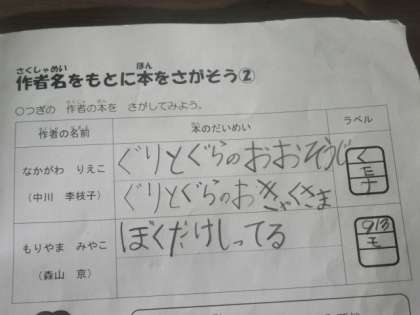 さくしゃめい ほん
作者名をもとに本をさがそう②
○つぎの 作者の本を さがしてみよう。
作者の名前 本のだいめい ラベル
なかがわ りえこ
(中川 李枝子)
ぐりとぐらのおおそうじ
ぐりとぐらのおきゃくさま
く
モ
ナ
もりやま みやこ
(森山 京)
ぼくだけしってる
913
モ